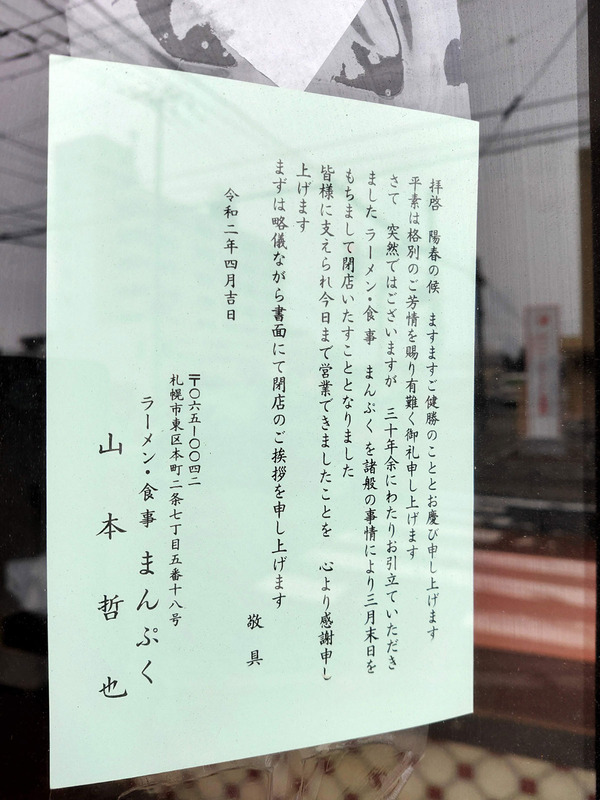 拝啓　陽春の候　ますますご健勝のこととお慶び申し上げます
平素は格別のご芳情を賜り有難く御礼申し上げます
さて　突然ではございますが　三十年余にわたりお引立ていただき
ました ラーメン・食事　まんぷく を諸般の事情により三月末日を
もちまして閉店いたすこととなりました
皆様に支えられ今日まで営業できましたことを　心より感謝申し
上げます
まずは略儀ながら書面にて閉店のご挨拶を申し上げます
敬具
令和二年四月吉日
〒〇六五ー〇〇四二
札幌市東区本町二条七丁目五番十八号
ラーメン・食事 まんぷく
山本哲也